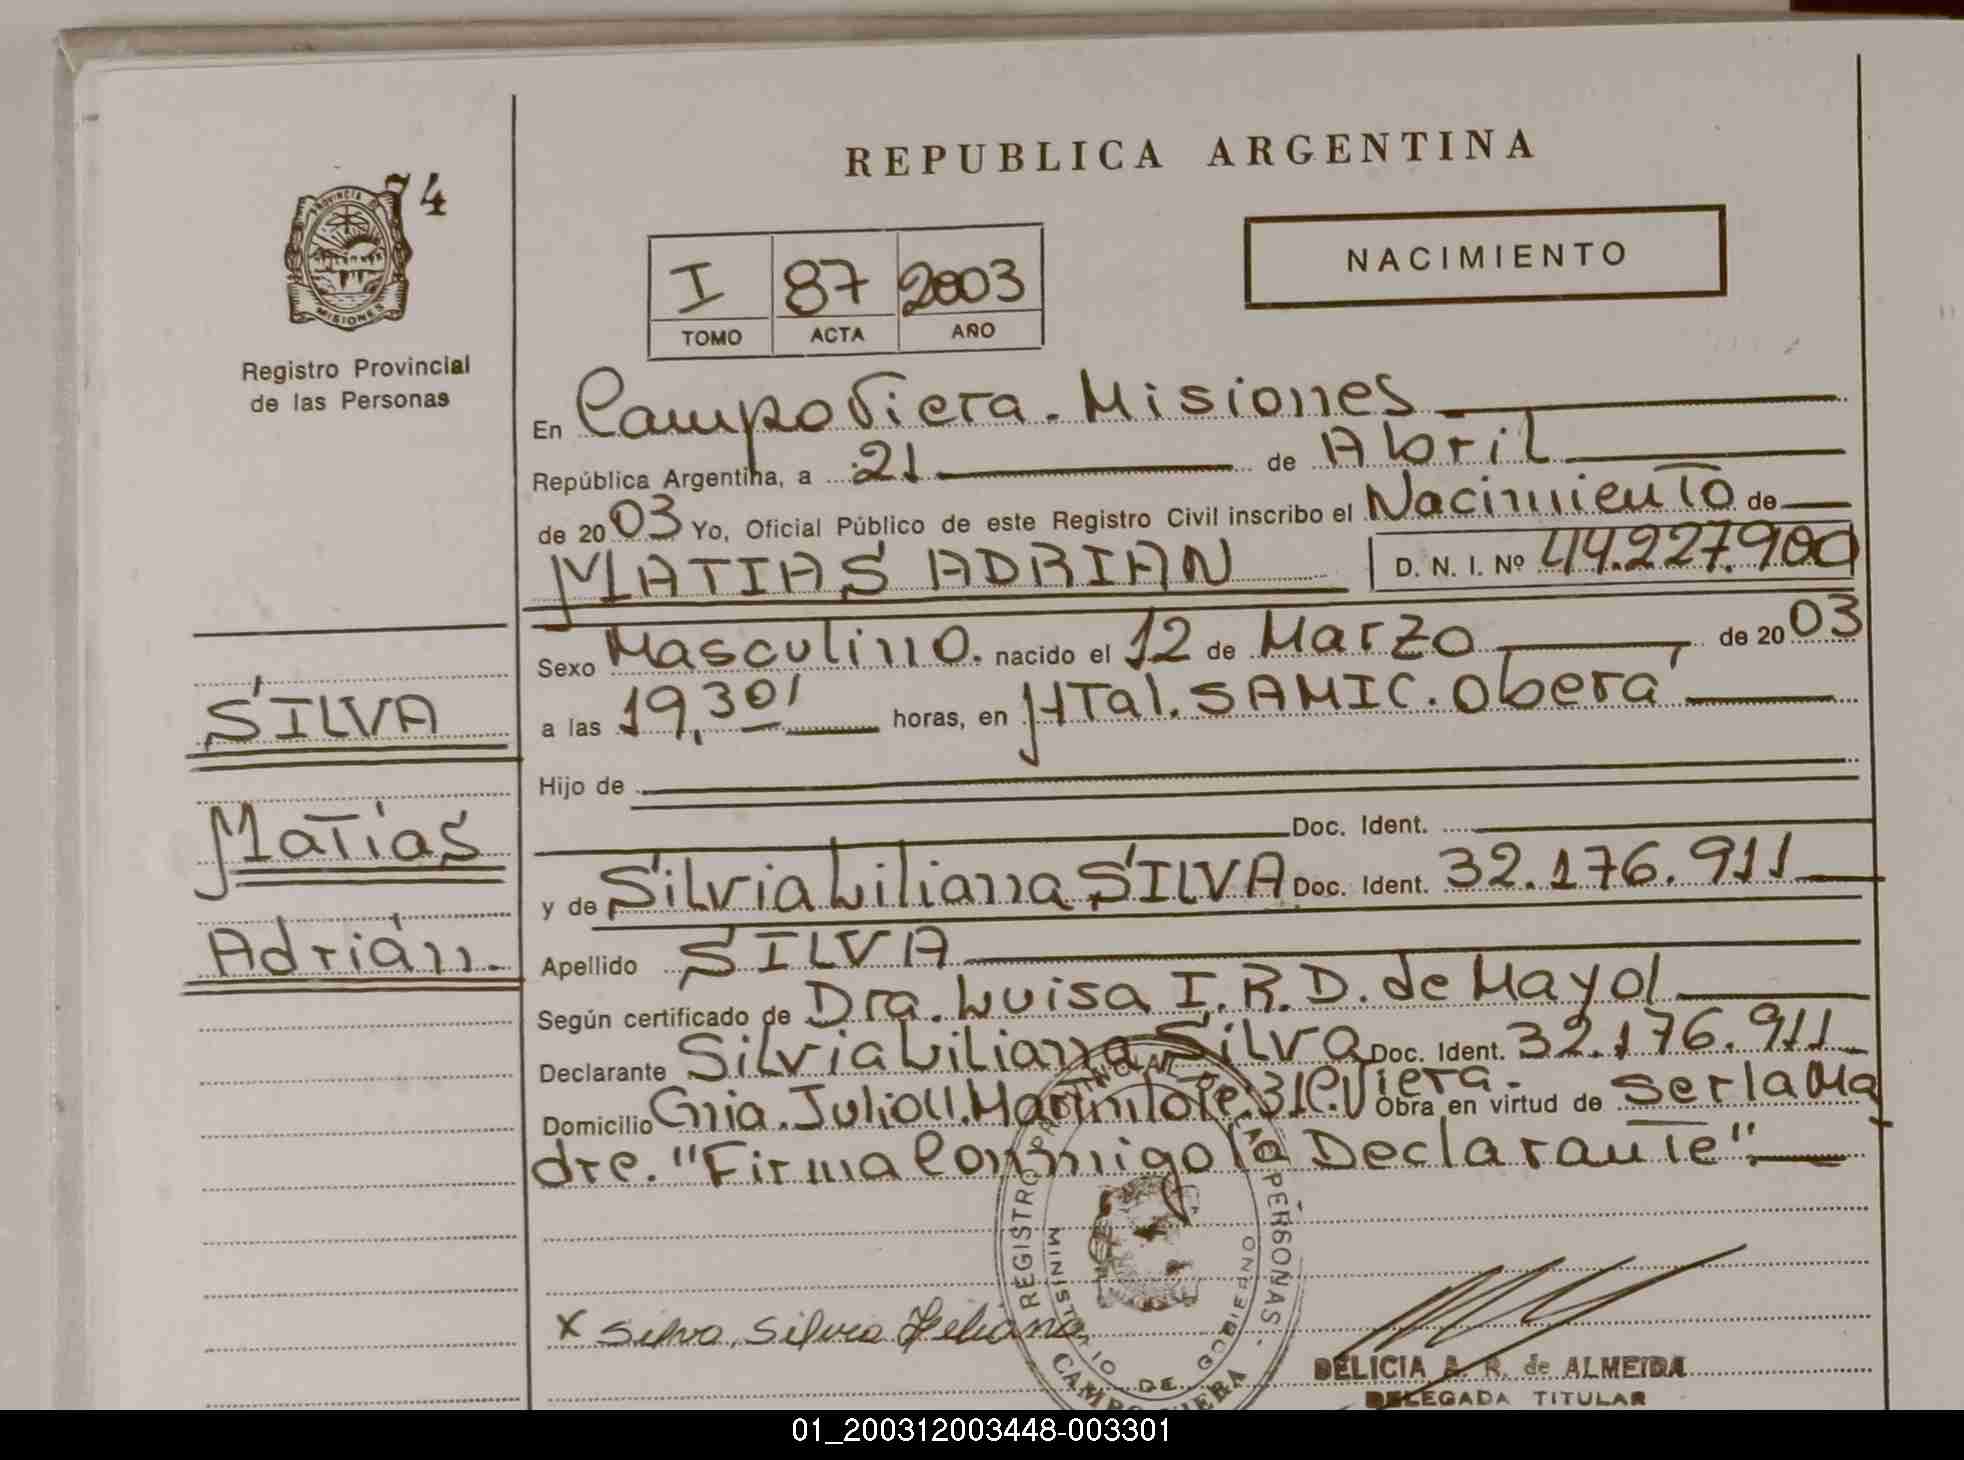 REPUBLICA ARGENTINA
74
PROVINCIA DE
MISIONES
Registro Provincial
de las Personas
NACIMIENTO
I 87 2003
TOMO ACTA AÑO
En Campo Viera. Misiones
República Argentina, a 21 de Abril
de 2003 Yo, Oficial Público de este Registro Civil inscribo el Nacimiento de
MATIAS ADRIAN D. N. I. Nº 44.227.900
Sexo Masculino. nacido el 12 de Marzo de 2003
a las 19,30' horas, en HTal. SAMIC. Oberá
Hijo de
Doc. Ident.
y de Silvia Liliana SILVA Doc. Ident. 32.176.911
Apellido SILVA
Según certificado de Dra. Luisa I. R. D. de Mayol
Declarante Silvia Liliana Silva Doc. Ident. 32.176.911
Domicilio Julio C. Viera. Obra en virtud de ser la Ma
dre. "Firma Conmigo la Declarante".
SILVA
Matías
Adrián.
REGISTRO PROVINCIAL DE LAS PERSONAS -
MINISTERIO DE GOBIERNO
CAMPO VIERA
X Silva, Silvia Liliana
DELICIA A. R. de ALMEIDA
DELEGADA TITULAR
01_200312003448-003301